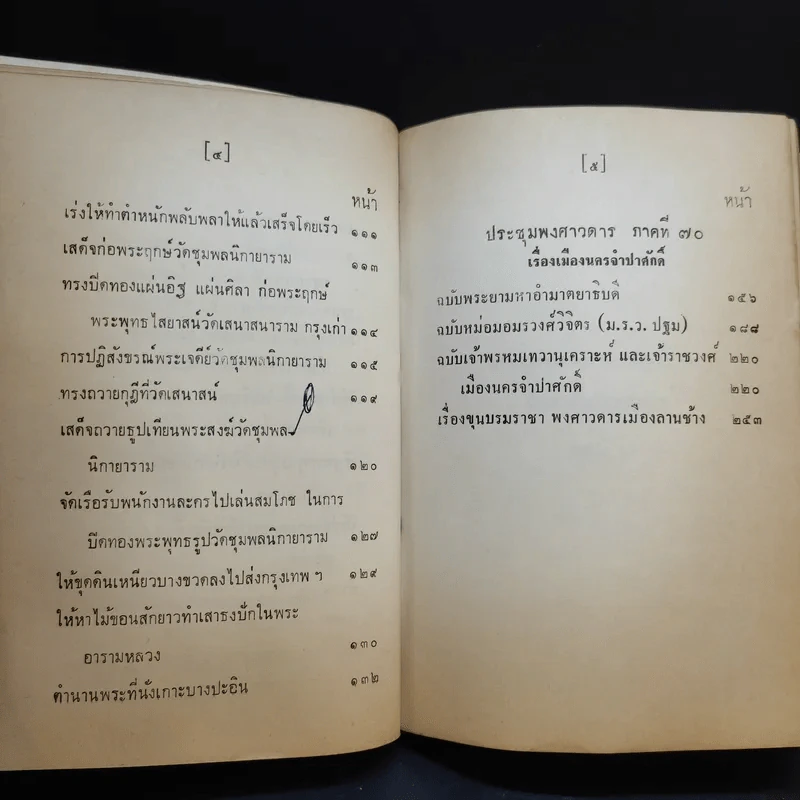 [๔]
หน้า
เร่งให้ทำตำหนักพลับพลาให้แล้วเสร็จโดยเร็ว ๑๑๑
เสด็จก่อพระฤกษ์วัดชุมพลนิกายาราม ๑๑๓
ทรงปิดทองแผ่นอิฐ แผ่นศิลา ก่อพระฤกษ์
พระพุทธไสยาสน์วัดเสนาสนาราม กรุงเก่า ๑๑๔
การปฏิสังขรณ์พระเจดีย์วัดชุมพลนิกายาราม ๑๑๕
ทรงถวายกุฎีที่วัดเสนาสน์ ๑๑๙
เสด็จถวายธูปเทียนพระสงฆ์วัดชุมพล
นิกายาราม ๑๒๐
จัดเรือรับพนักงานละครไปเล่นสมโภช ในการ
ปิดทองพระพุทธรูปวัดชุมพลนิกายาราม ๑๒๗
ให้ขุดดินเหนียวบางขวดลงไปส่งกรุงเทพ ฯ ๑๒๙
ให้หาไม้ขอนสักยาวทำเสาธงปักในพระ
อารามหลวง ๑๓๐
ตำนานพระที่นั่งเกาะบางปะอิน ๑๓๒
[๕]
หน้า
ประชุมพงศาวดาร ภาคที่ ๗๐
เรื่องเมืองนครจำปาศักดิ์
ฉบับพระยามหาอำมาตยาธิบดี ๑๕๖
ฉบับหม่อมอมรวงศ์วิจิตร (ม.ร.ว. ปฐม) ๑๘๘
ฉบับเจ้าพรหมเทวานุเคราะห์ และเจ้าราชวงศ์ ๒๒๐
เมืองนครจำปาศักดิ์ ๒๒๐
เรื่องขุนบรมราชา พงศาวดารเมืองลานช้าง ๒๕๓